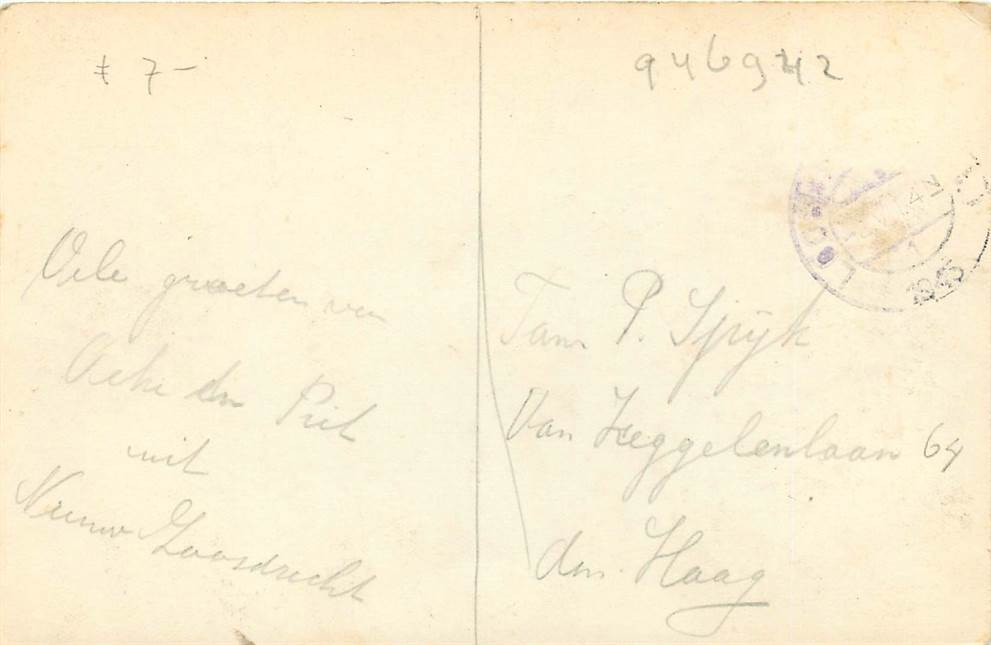 7-
946942
Vele groeten van
en Piet
uit
Nieuw Loosdrecht
Fam P. Spijk
Van Zeggelenlaan 64
den Haag
1945